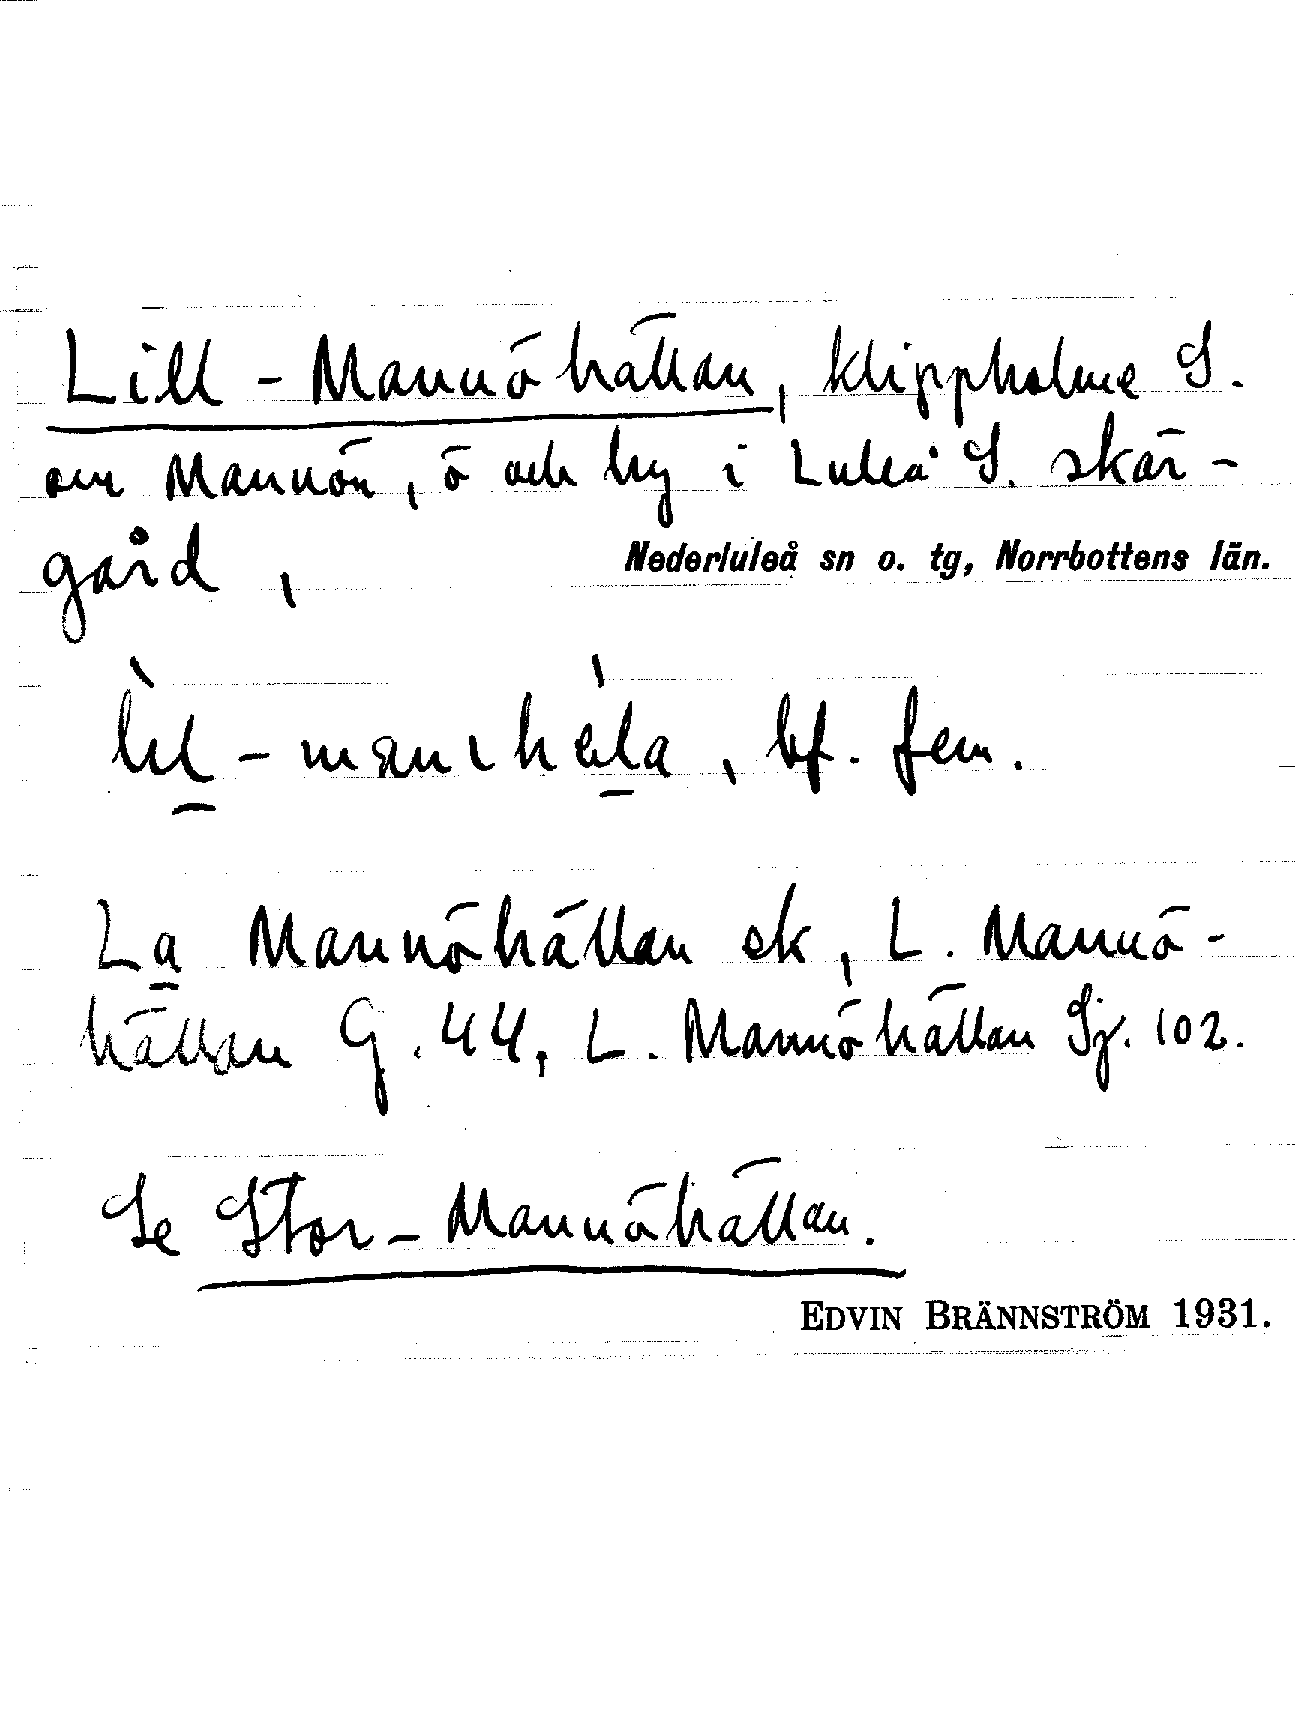 Lill-Mannöhällan, klippholme S.
om Mannön, ö och by i Luleå S. skär-
gård,
Nederluleå sn o. tg, Norrbottens län.
bf. fem.
La Mannöhällan ek, L. Mannö-
hällan G. 44, L. Mannöhällan Sj. 102.
Se Stor-Mannöhällan.
EDVIN BRÄNNSTRÖM 1931.